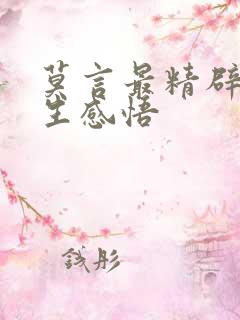 莫言最精辟
生感悟
钱彤